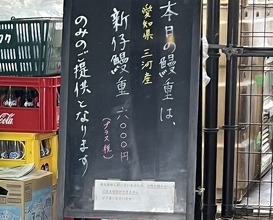 本日の鰻重は、
愛知県 三河産
新仔鰻重 六〇〇〇円
(プラス税)
のみのご提供となります
Coca